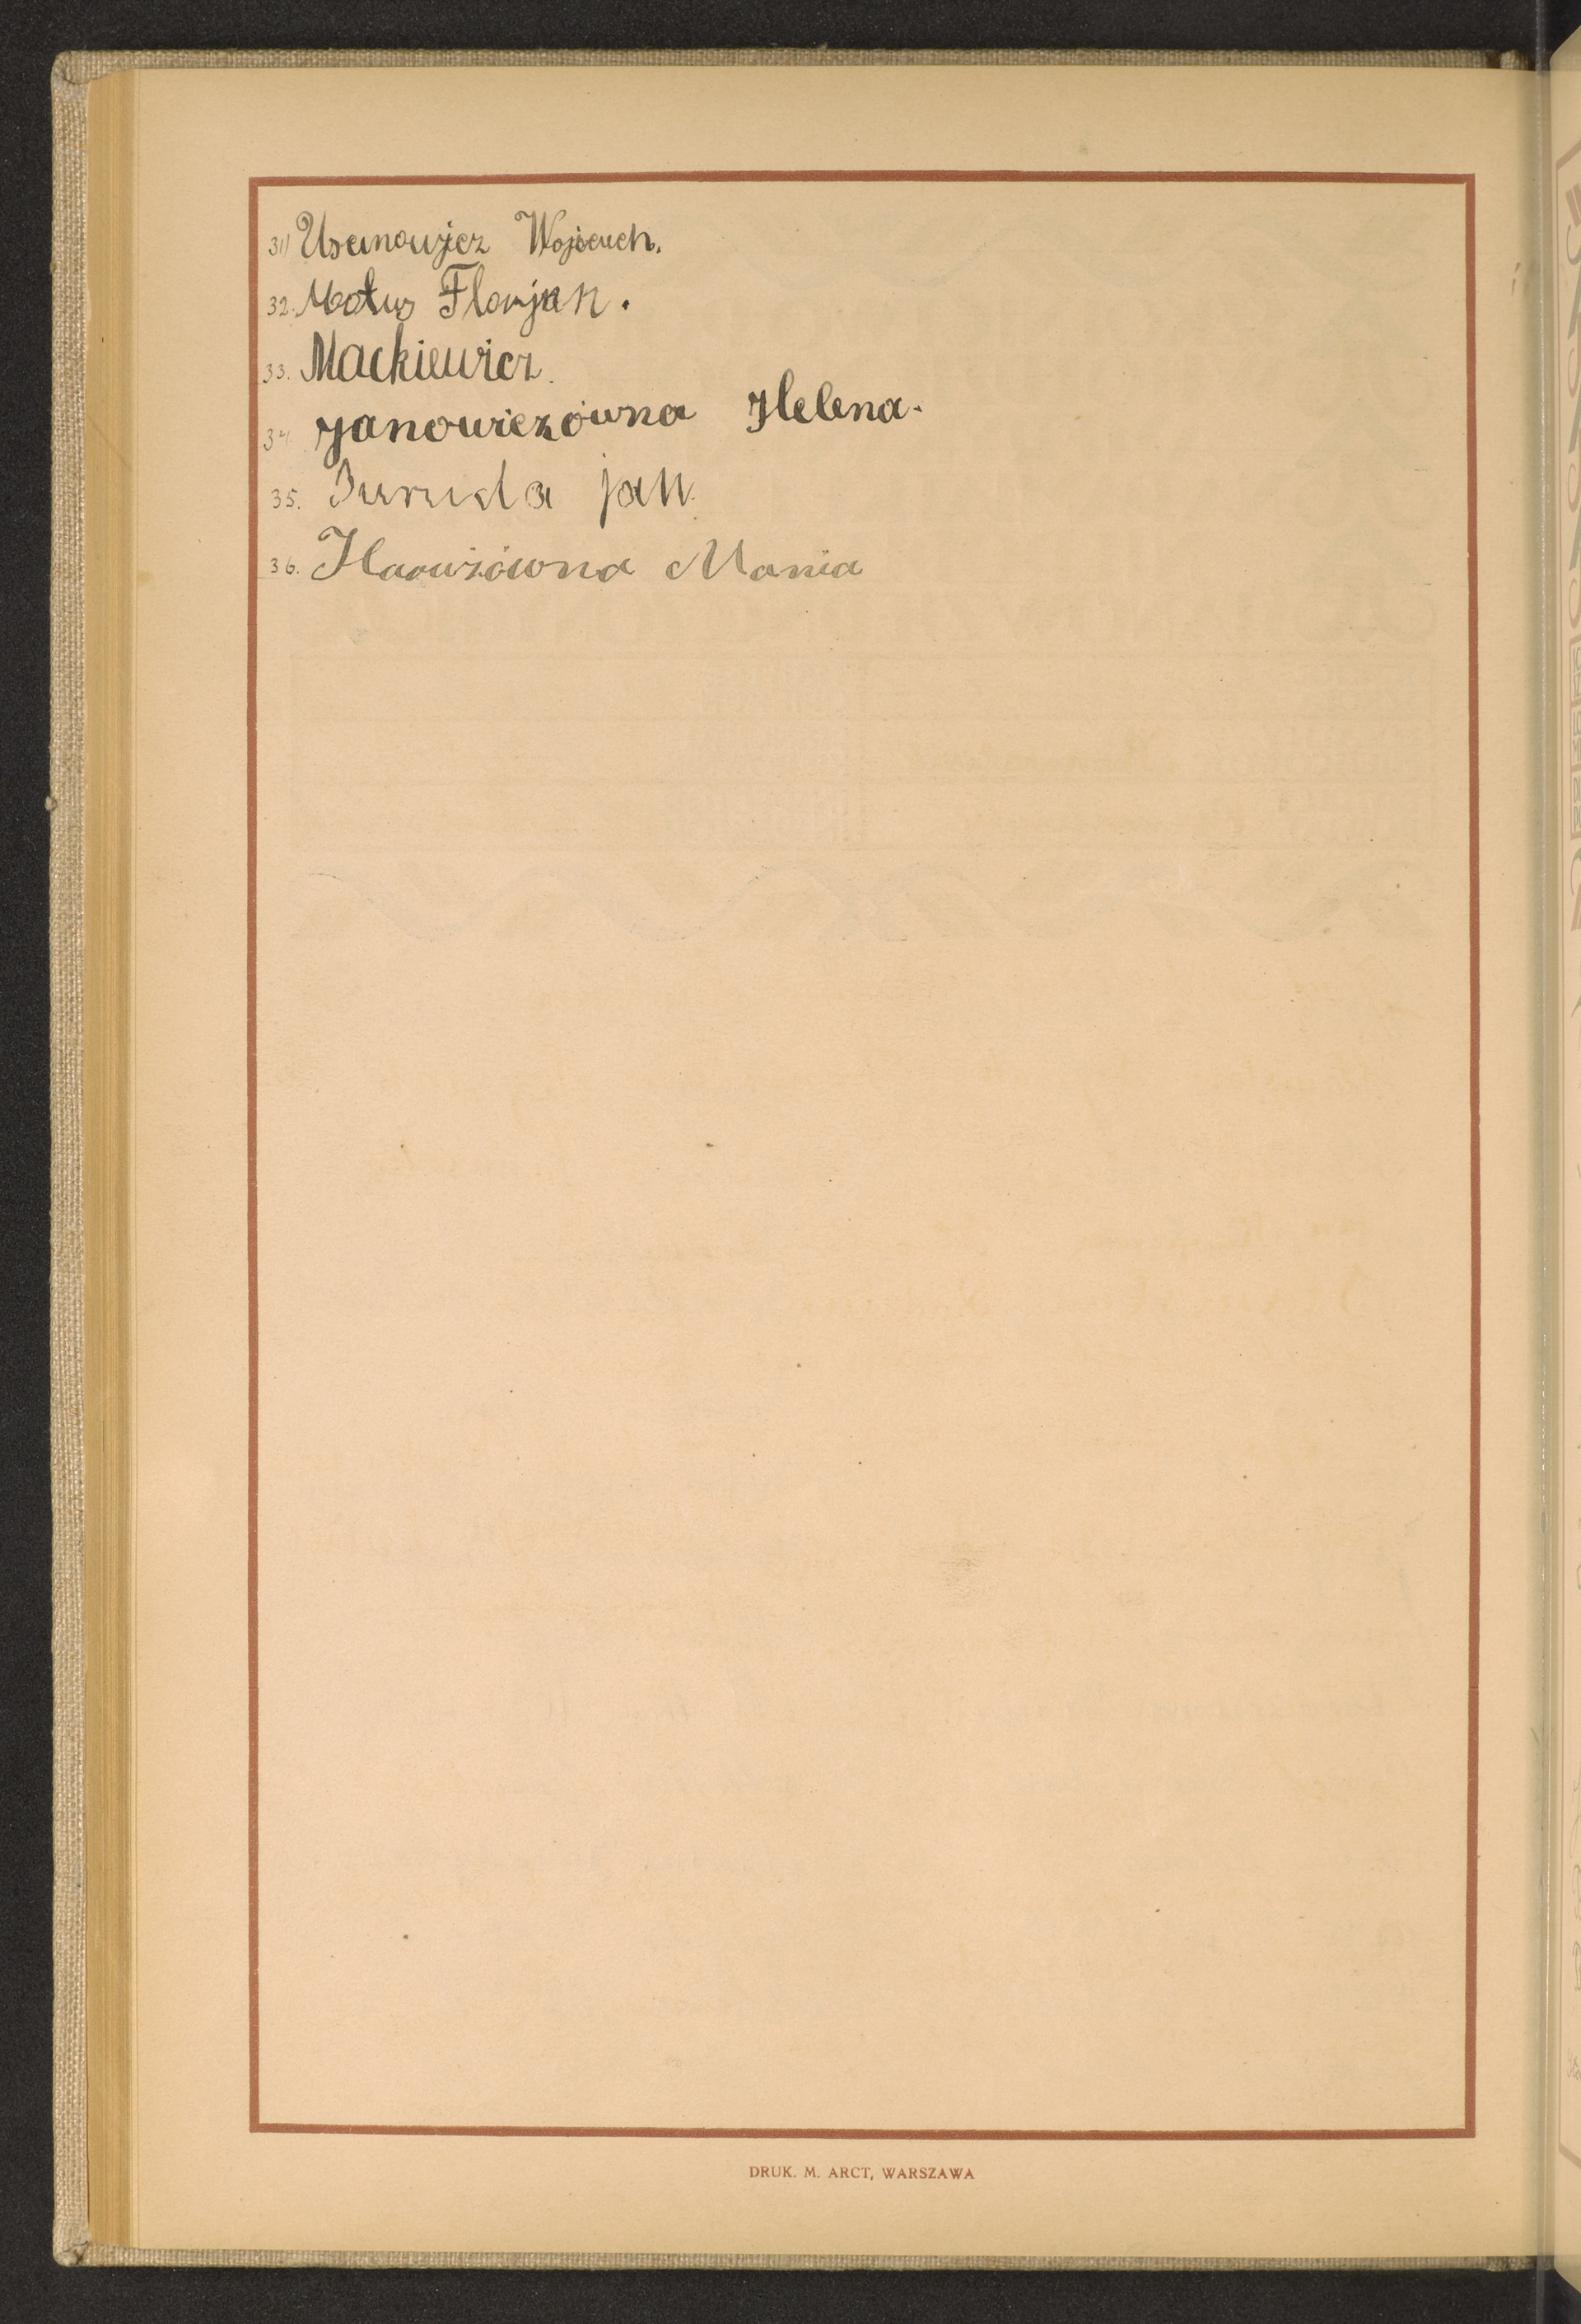 31) Usenowicz Wojciech.
32. Motuz Florjan.
33. Mackiewicz.
34. Janowiczówna Helena.
35. Juruda jan.
36. Mania
DRUK. M. ARCT, WARSZAWA